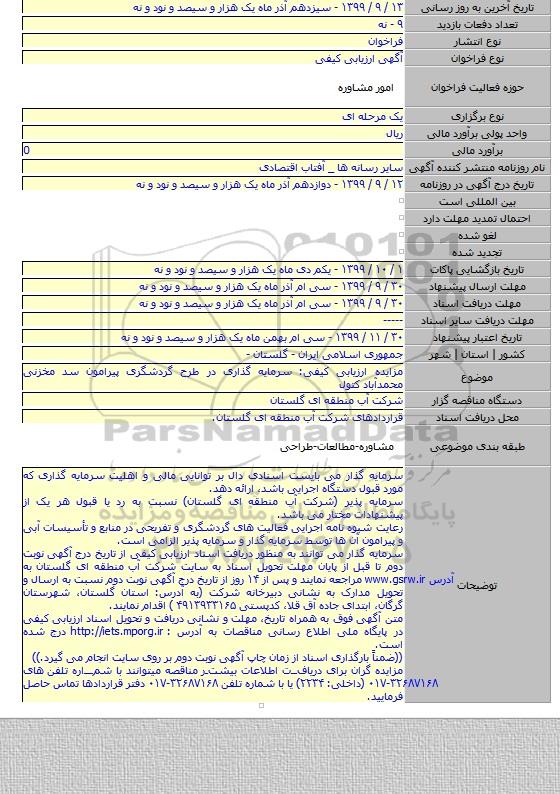 تاریخ آخرین به روز رسانی ۱۳ / ۹ / ۱۳۹۹ - سیزدهم آذر ماه یک هزار و سیصد و نود و نه
تعداد دفعات بازدید ۹ - نه
نوع انتشار فراخوان
نوع فراخوان آگهی ارزیابی کیفی
حوزه فعالیت فراخوان امور مشاوره
نوع برگزاری یک مرحله ای
واحد پولی برآورد مالی ریال
برآورد مالی 0
نام روزنامه منتشر کننده آگهی سایر رسانه ها _ آفتاب اقتصادی
تاریخ درج آگهی در روزنامه ۱۲ / ۹ / ۱۳۹۹ - دوازدهم آذر ماه یک هزار و سیصد و نود و نه
بین المللی است
احتمال تمدید مهلت دارد
لغو شده
تجدید شده
تاریخ بازگشایی پاکات ۱ / ۱۰ / ۱۳۹۹ - یکم دی ماه یک هزار و سیصد و نود و نه
مهلت ارسال پیشنهاد ۳۰ / ۹ / ۱۳۹۹ - سی ام آذر ماه یک هزار و سیصد و نود و نه
مهلت دریافت اسناد ۳۰ / ۹ / ۱۳۹۹ - سی ام آذر ماه یک هزار و سیصد و نود و نه
مهلت دریافت سایر اسناد -----
تاریخ اعتبار پیشنهاد ۳۰ / ۱۱ / ۱۳۹۹ - سی ام بهمن ماه یک هزار و سیصد و نود و نه
کشور | استان | شهر جمهوری اسلامی ایران - گلستان -
موضوع مزایده ارزیابی کیفی: سرمایه گذاری در طرح گردشگری پیرامون سد مخزنی
محمدآباد کتول
دستگاه مناقصه گزار شرکت آب منطقه ای گلستان
محل دریافت اسناد قراردادهای شرکت آب منطقه ای گلستان.
ParsNamadData
طبقه بندی موضوعی مشاوره-مطالعات-طراحی
توضیحات
سرمایه گذار می بایست اسنادی دال بر توانایی مالی و اهلیت سرمایه گذاری که
مورد قبول دستگاه اجرایی باشد، ارائه دهد.
سرمایه پذیر (شرکت آب منطقه ای گلستان) نسبت به رد یا قبول هر یک از
پیشنهادات مختار می باشد.
رعایت شیوه نامه اجرایی فعالیت های گردشگری و تفریحی در منابع و تأسیسات آبی
و پیرامون آن ها توسط سرمایه گذار و سرمایه پذیر الزامی است.
سرمایه گذار می توانند به منظور دریافت اسناد ارزیابی کیفی از تاریخ درج آگهی نوبت
دوم تا قبل از پایان مهلت تحویل اسناد به سایت شرکت آب منطقه ای گلستان به
آدرس www.gsrw.ir مراجعه نمایند و پس از ۱۴ روز از تاریخ درج آگهی نوبت دوم نسبت به ارسال و
تحویل مدارک به نشانی دبیرخانه شرکت (به آدرس: استان گلستان، شهرستان
گرگان، ابتدای جاده آق قلا، کدپستی ۴۹۱۳۹۳۳۱۶۵ ) اقدام نمایند.
متن آگهی فوق به همراه تاریخ، مهلت و نشانی دریافت و تحویل اسناد ارزیابی کیفی
در پایگاه ملی اطلاع رسانی مناقصات به آدرس : http://iets.mporg.ir درج شده
است.
((ضمناً بارگذاری اسناد از زمان چاپ آگهی نوبت دوم بر روی سایت انجام می گیرد.))
مزایده گران برای دریافت اطلاعات بیشتر مناقصه میتوانند با شماره تلفن های
۳۲۶۸۷۱۶۸-۰۱۷ (داخلی: ۲۲۳۴) یا با شماره تلفن ۳۲۶۸۷۱۶۸-۰۱۷ دفتر قراردادها تماس حاصل
فرمایید.